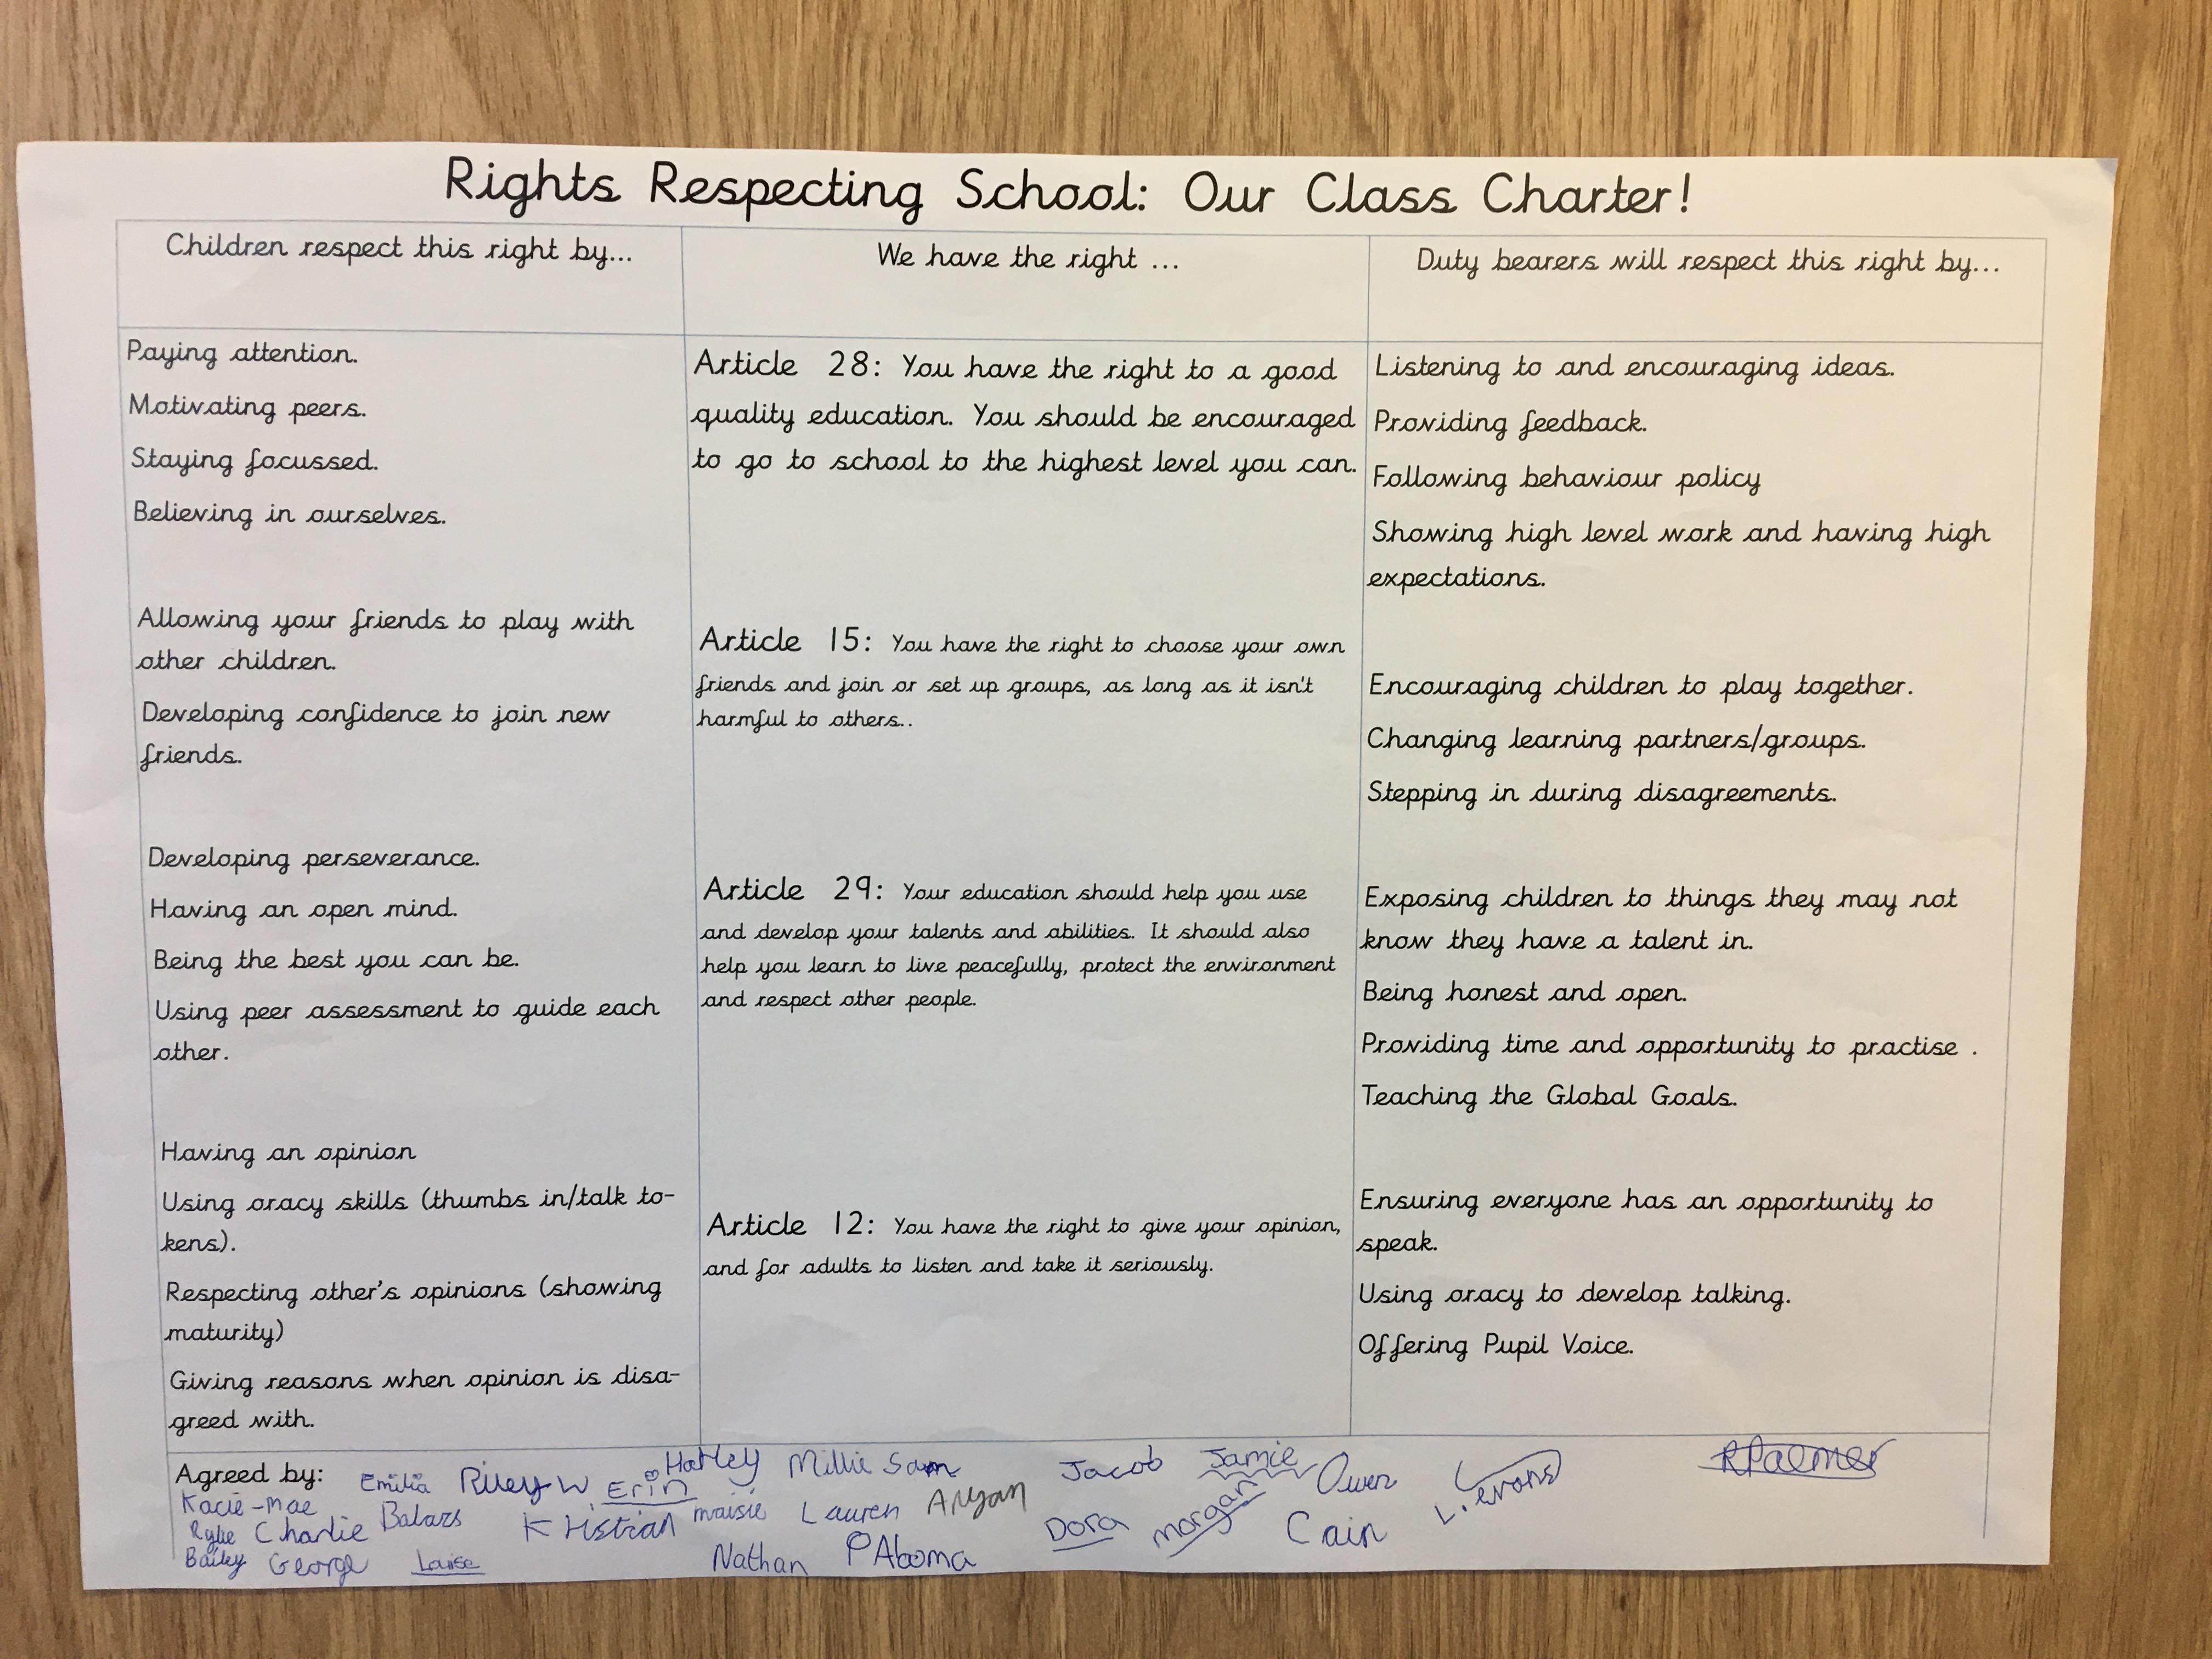 Rights Respecting School: Our Class Charter!
Children respect this right by...
Paying attention.
Motivating peers.
Staying focussed.
Believing in ourselves.
Allowing your friends to play with
other children.
Developing confidence to join new
friends.
Developing perseverance.
Having an open mind.
Being the best you can be.
Using peer assessment to guide each
other.
Having an opinion
Using oracy skills (thumbs in/talk to-
kens).
Respecting other's opinions (showing
maturity)
Giving reasons when opinion is disa-
greed with.
We have the right ...
Article 28: You have the right to a good
quality education. You should be encouraged
to go to school to the highest level you can.
Article 15: You have the right to choose your own
friends and join or set up groups, as long as it isn't
harmful to others..
Article 29: Your education should help you use
and develop your talents and abilities. It should also
help you learn to live peacefully, protect the environment
and respect other people.
Article 12: You have the right to give your opinion,
and for adults to listen and take it seriously.
Duty bearers will respect this right by...
Listening to and encouraging ideas.
Providing feedback.
Following behaviour policy
Showing high level work and having high
expectations.
Encouraging children to play together.
Changing learning partners/groups.
Stepping in during disagreements.
Exposing children to things they may not
know they have a talent in.
Being honest and open.
Providing time and opportunity to practise .
Teaching the Global Goals.
Ensuring everyone has an opportunity to
speak.
Using oracy to develop talking.
Offering Pupil Voice.
Agreed by: Emilia Riley W Erin Harley Millie Sam Jacob Jamie Owen L. evans RPalmer
Kacie-mae Balazs Kristian maisie Lauren Aryan Dora morgan Cain
Charlie
Bailey George Nathan PAloma